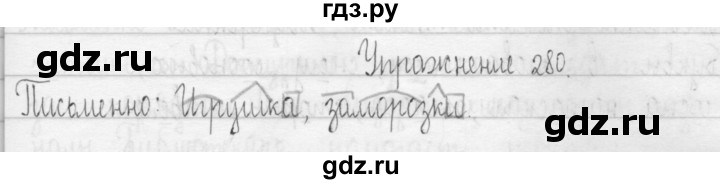 гдз.ру
gdz.ru
Упражнение 280.
Письменно: Игрушка, заморозки.
gdz.ru
gdz.ru